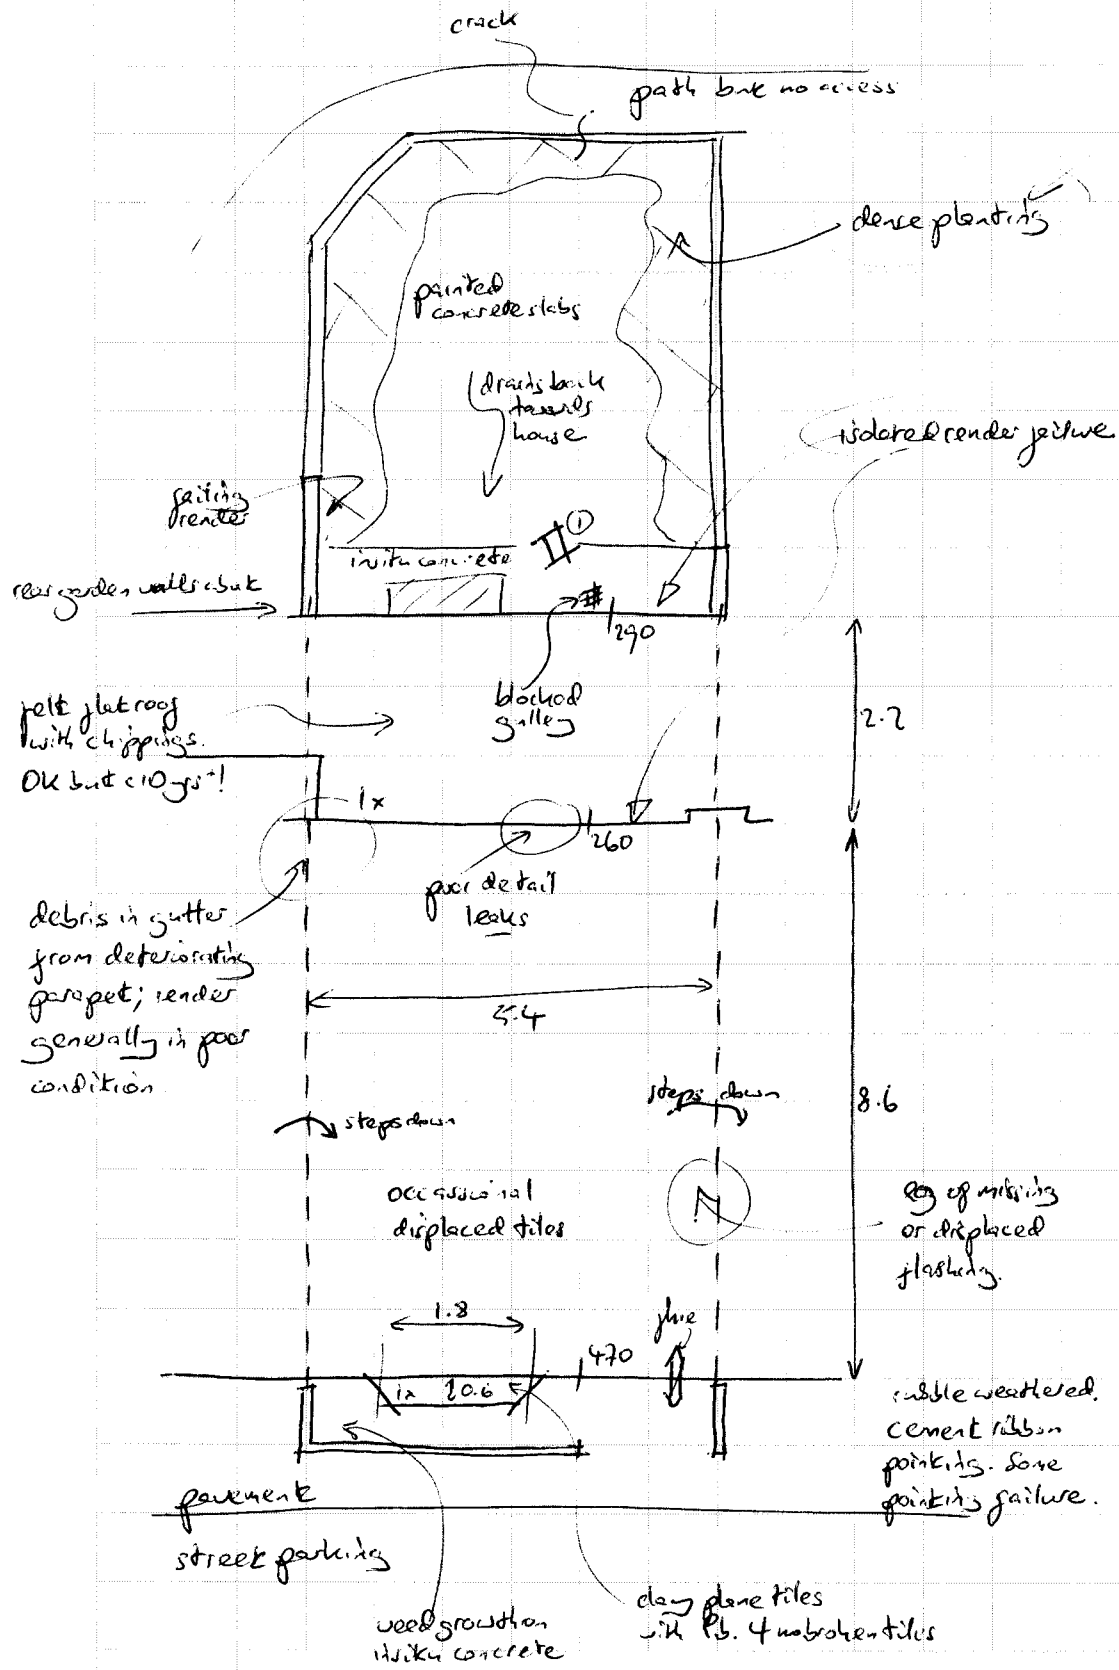 crack
path but no access
dense planting
painted
concrete slabs
drains back
towards
house
isolated render failure
failing
render
insitu concrete
1
rear garden walls abut
290
blocked
gulley
felt flat roof
with chippings.
OK but <10yrs!
2.2
1x
260
poor detail
leaks
debris in gutter
from deteriorating
parapet; render
generally in poor
condition
5.4
steps down
steps down
8.6
occassional
displaced tiles
eg of missing
or displaced
flashing.
1.8
flue
470
1x
0.6
rubble weathered.
cement ribbon
pointing. Some
pointing failure.
pavement
street parking
weed growth on
insitu concrete
clay plane tiles
with Pb. 4 no broken tiles